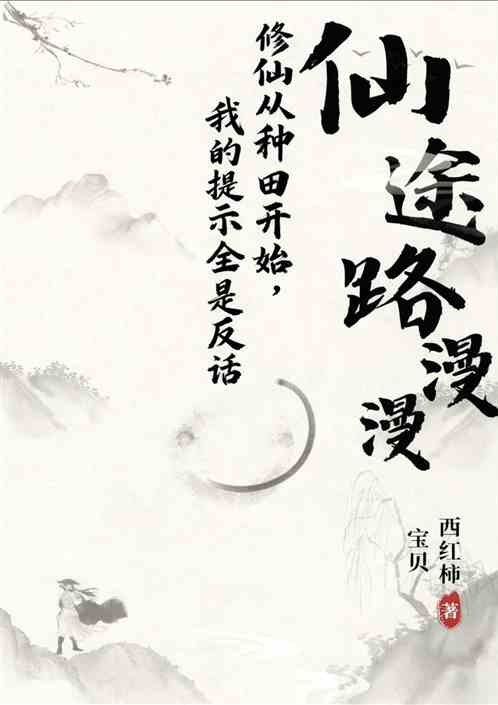 仙途路漫漫
修仙从种田开始，
我的提示全是反话
西红柿
宝贝
著